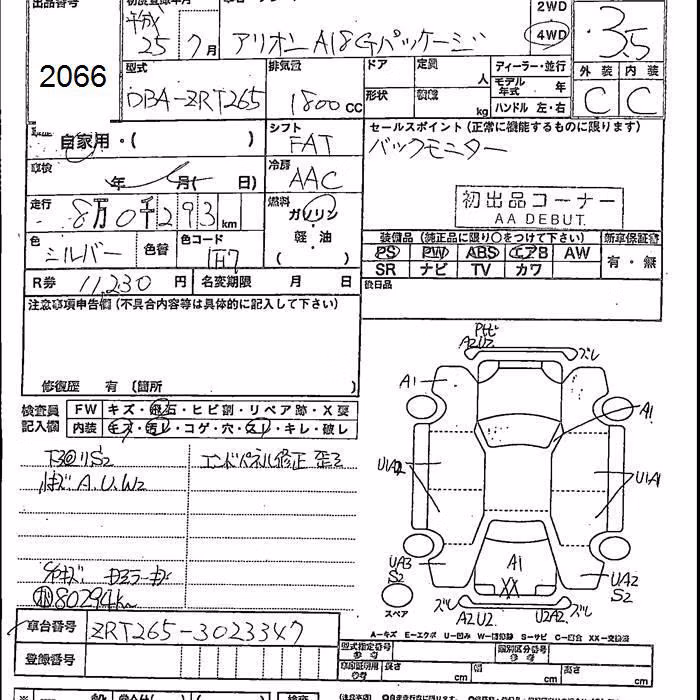 出品番号 初度登録年月
2066
平成 25 7月
アリオン A18Gパッケージ
2WD
4WD
3.5
外装 内装
C C
型式 排気量 ドア 定員 人 ディーラー・並行
DBA-ZRT265 1800 CC
形状 kg モデル年式 年
ハンドル 左・右
自家用・( )
シフト
FAT
セールスポイント(正常に機能するものに限ります)
バックモニター
車検 年 月( 日)
冷房
AAC
初出品コーナー
AA DEBUT.
走行
8万0千293km
燃料
ガソリン
軽・油
( )
色 シルバー 色替 色コード 1F7
装備品(純正品に限り〇をつけて下さい) 新車保証書
PS PW ABS エアB AW 有・無
SR ナビ TV カワ
R券 11,230円 名変期限 月 日
後日品
注意事項申告欄(不具合内容等は具体的に記入して下さい)
修復歴 有 (箇所 )
検査員記入欄
FW キズ・飛石・ヒビ割・リペア跡・X要
内装 キズ・汚レ・コゲ・穴・スレ・キレ・破レ
エンドパネル修正 歪ミ
A.U.W2
80294km
A1
A2U2
ズレ
A1
U1A1
A1
XX
UA3
S2
UA2
S2
スペア
ズレ A2U2 U2A2 ズレ
車台番号 ZRT265-3023347
A-キズ E-エクボ U-凹み S-サビ
登録番号
型式指定番号 類別区分番号
参考
長さ cm 幅 cm 高さ cm